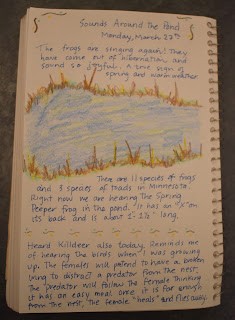 Sounds Around the Pond
Monday, March 22nd
The frogs are singing again! They
have come out of hibernation and
sound so joyful. A sure sign of
spring and warm weather.
There are 11 species of frogs
and 3 species of toads in Minnesota.
Right now we are hearing the Spring
Peeper frog in the pond. It has an "X" on
its back and is about 2-2½" long.
Heard Killdeer also today. Reminds me
of hearing the birds when I was growing
up. The females will pretend to have a broken
wing to distract a predator from the nest.
The predator will follow the female thinking
it has an easy meal. Once it is far enough
from the nest, the female "heals" and flies away.